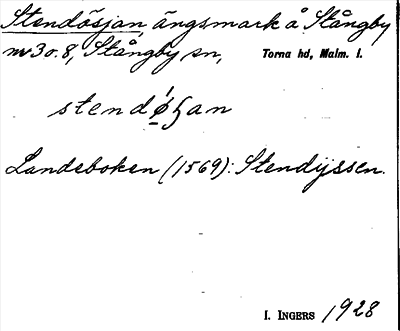 Stendösjan, ängsmark å Stångby
nr 3 o. 8, Stångby sn, Torna hd, Malm. l.
Landeboken (1569): Stendijssen.
I. INGERS 1928